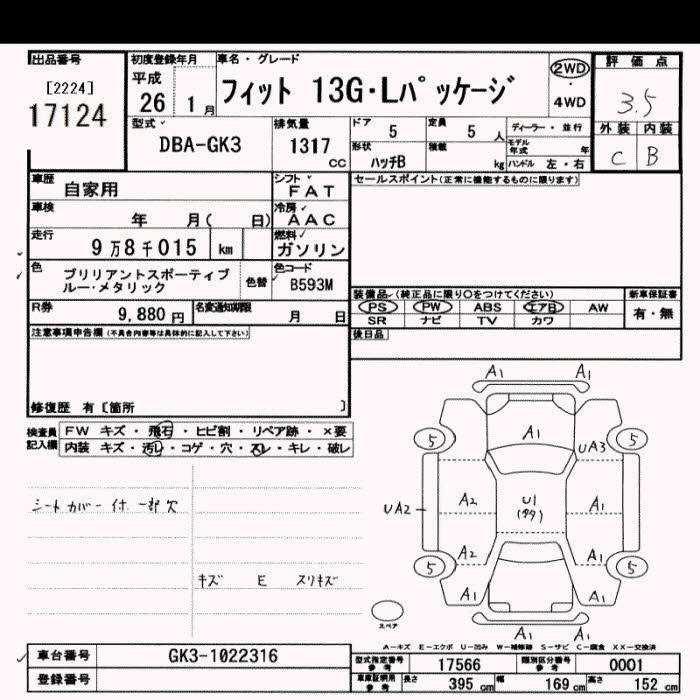 出品番号
[2224]
17124
初度登録年月
平成
26 1月
車名・グレード
フィット 13G・Lパッケージ
2WD
・
4WD
評価点
3.5
外装 内装
C B
型式
DBA-GK3
排気量
1317
CC
ドア 5
定員 5 人
ディーラー・並行
形状
ハッチB
積載 kg
モデル年式 年
ハンドル 左・右
車歴
自家用
シフト
FAT
セールスポイント(正常に機能するものに限ります)
車検 年 月( 日)
冷房
AAC
走行
9万8千015 km
燃料
ガソリン
色
ブリリアントスポーティブ
ルー・メタリック
色替
色コード
B593M
装備品(純正品に限り○をつけてください)
PS PW ABS エアB AW
SR ナビ TV カワ
新車保証書
有・無
R券 9,880円
名変通知期限 月 日
後日品
注意事項申告欄(不具合内容等は具体的に記入して下さい)
修復歴 有〔箇所 〕
検査員
記入欄
FW キズ・飛石・ヒビ割・リペア跡・×要
内装 キズ・汚レ・コゲ・穴・スレ・キレ・破レ
シートカバー付 一部欠
キズ E スリキズ
A1 A1
5 A1 5
UA3
A2 U1 A1
UA2
(タタ)
A2 A1
5 5
A1 A1
A1 A1
スペア
A-キズ E-エクボ U-凹み W-補修跡 S-サビ C-腐食 XX-交換済
車台番号 GK3-1022316
登録番号
型式指定番号
参考
17566
類別区分番号
参考
0001
車庫証明用
参考
長さ 395 cm 幅 169 cm 高さ 152 cm